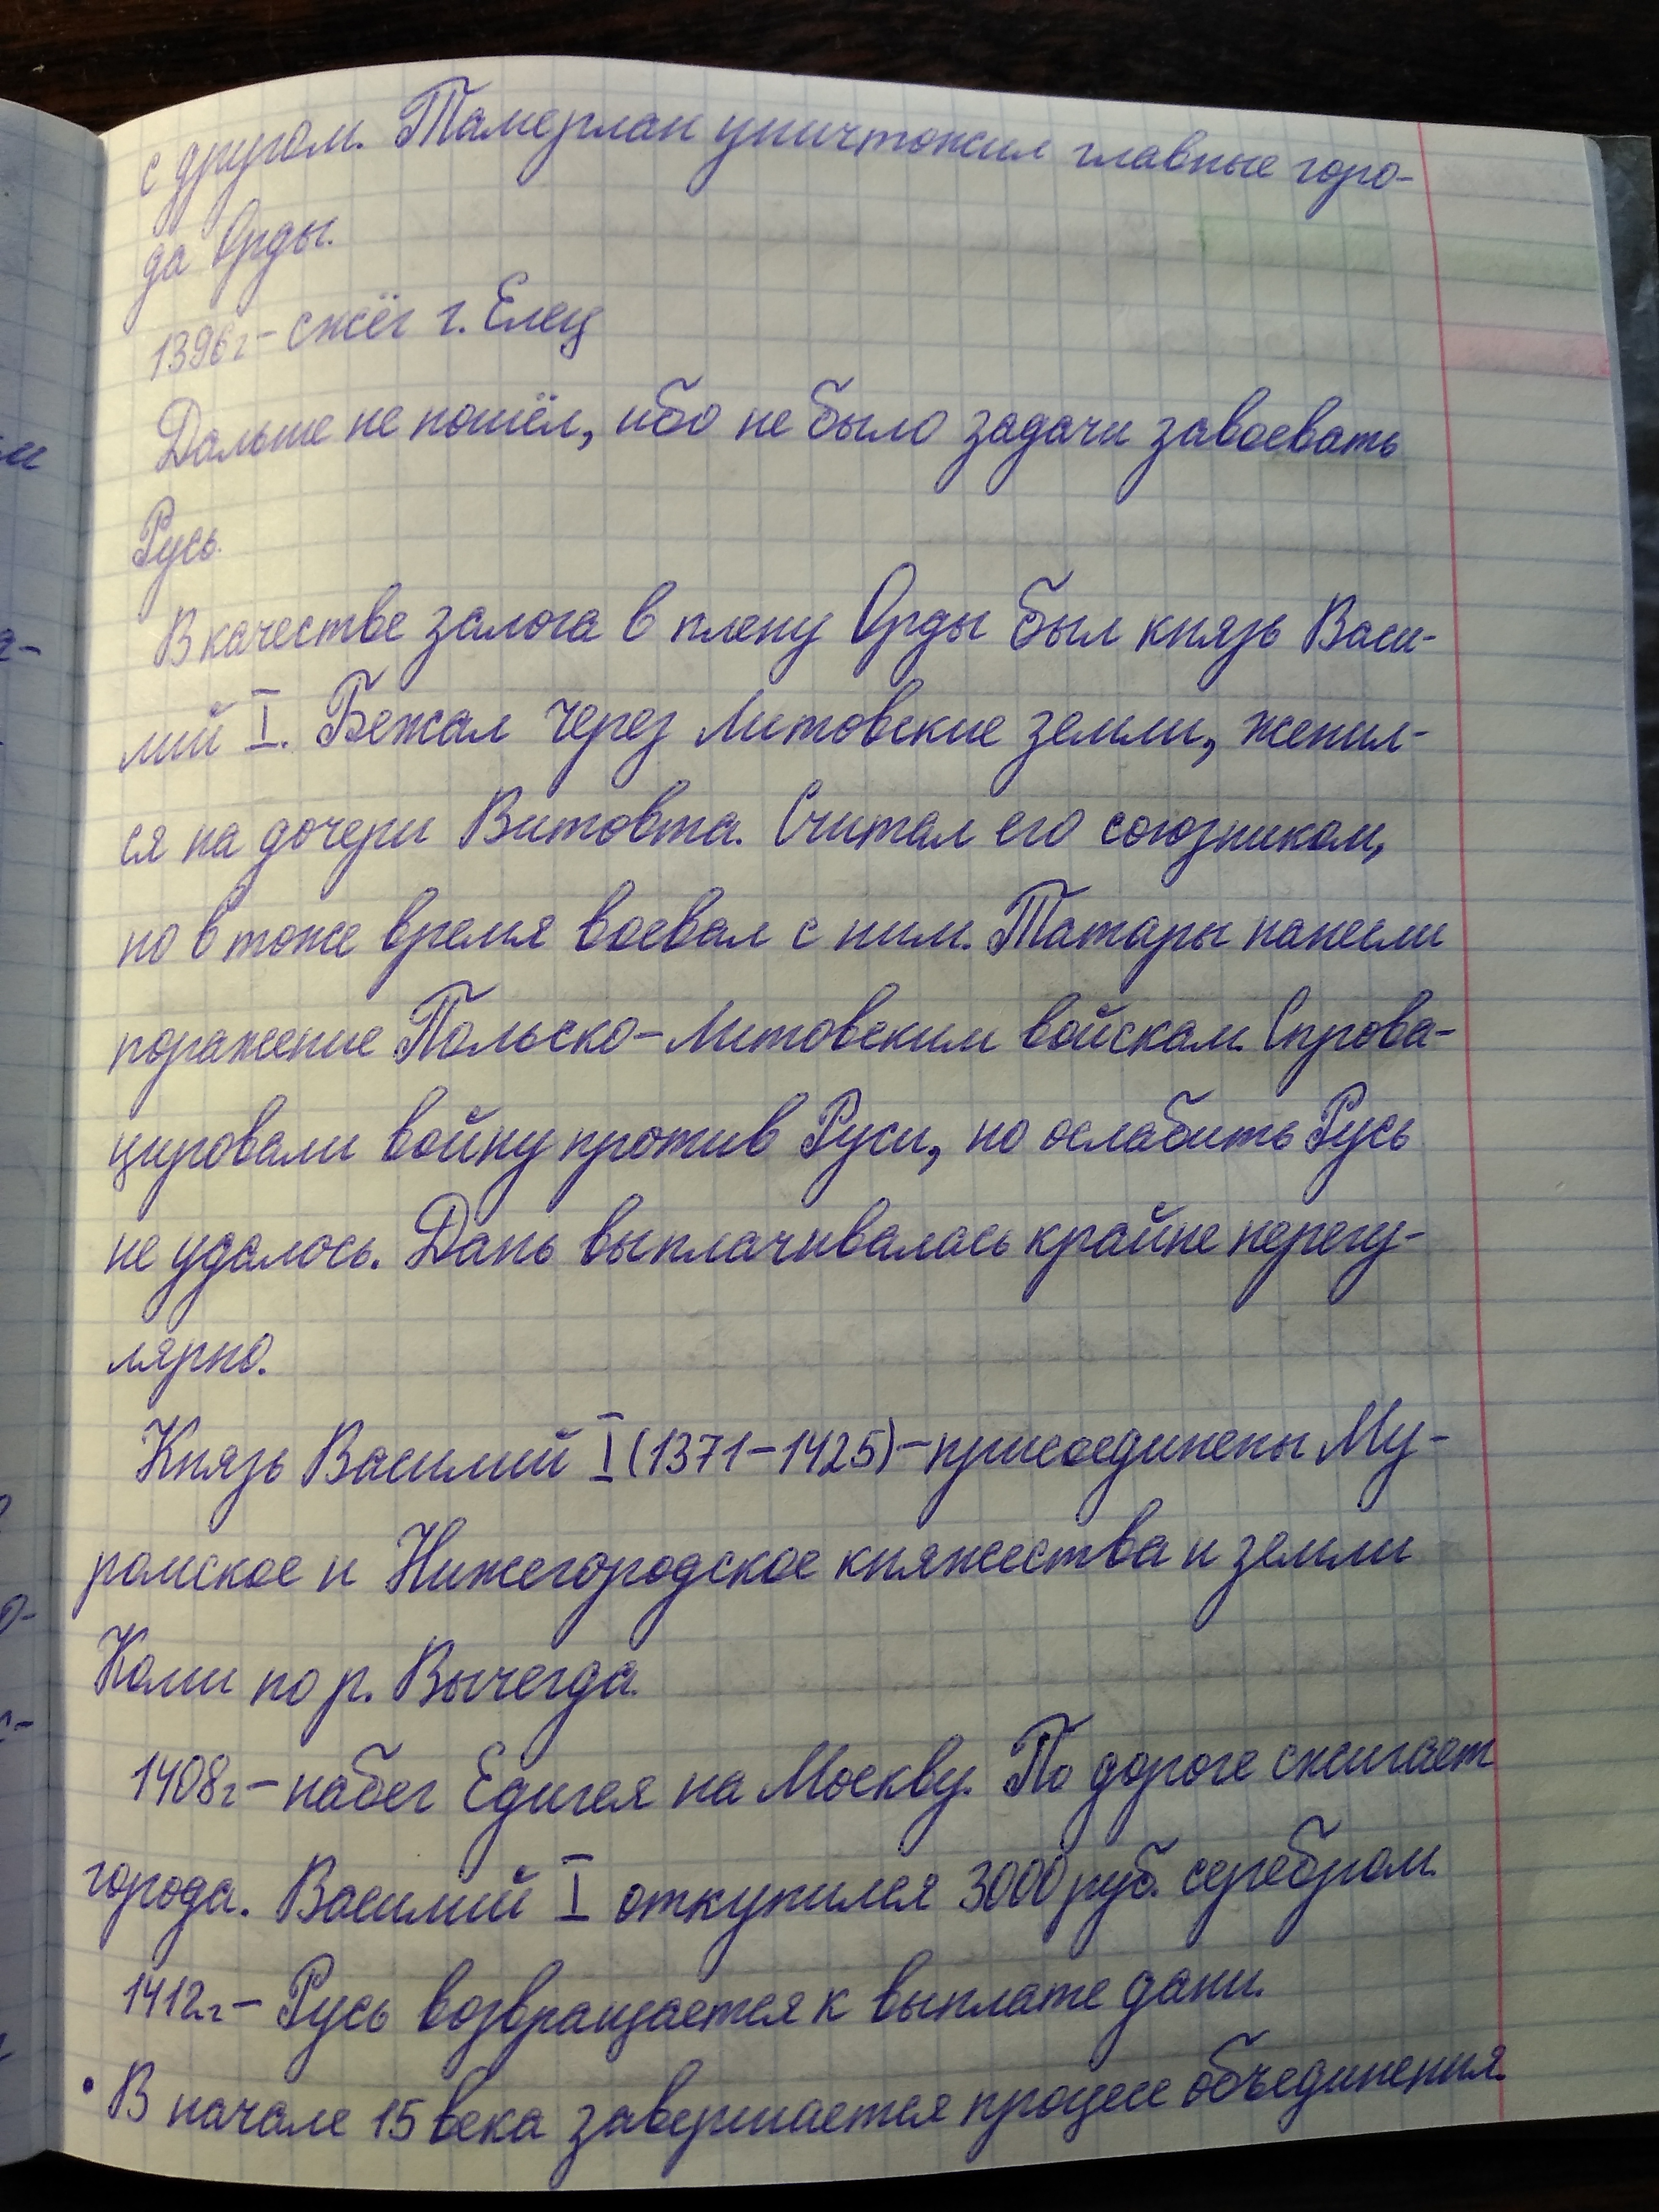 с другом. Тамерлан уничтожил главные горо-
да Орды.
1396г - сжёг г. Елец
Дальше не пошёл, ибо не было задачи завоевать
Русь.
В качестве залога в плену Орды был князь Васи-
лий I. Бежал через Литовские земли, женил-
ся на дочери Витовта. Считал его союзником,
но в тоже время воевал с ним. Татары нанесли
поражение Польско-Литовским войскам. Спрова-
цировали войну против Руси, но ослабить Русь
не удалось. Дань выплачивалась крайне нерегу-
лярно.
Князь Василий I (1371-1425) - присоединены Му-
ромское и Нижегородское княжества и земли
Коми по р. Вычегда.
1408г - набег Едигея на Москву. По дороге сжигает
города. Василий I откупился 3000 руб. серебром.
1412г - Русь возвращается к выплате дани.
• В начале 15 века завершается процесс объединения.